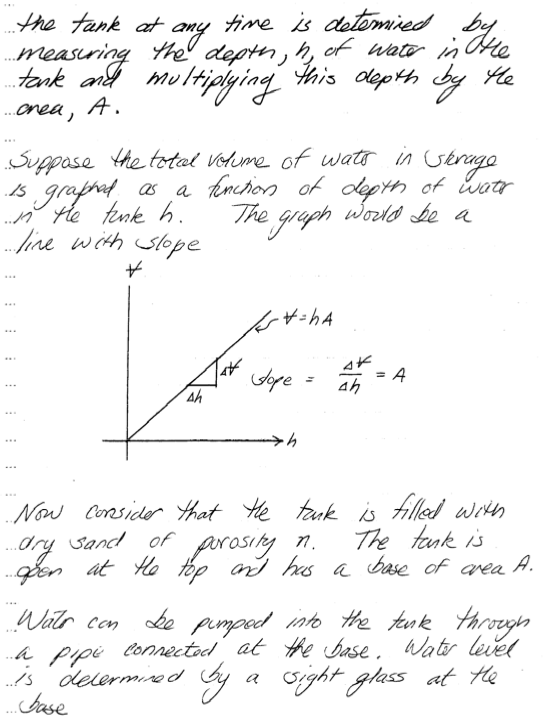 the tank at any time is determined by
measuring the depth, h, of water in the
tank and multiplying this depth by the
area, A.
Suppose the total volume of water in storage
is graphed as a function of depth of water
in the tank h. The graph would be a
line with slope
V
V = hA
ΔV
Δh
slope = ΔV/Δh = A
h
Now consider that the tank is filled with
dry sand of porosity n. The tank is
open at the top and has a base of area A.
Water can be pumped into the tank through
a pipe connected at the base. Water level
is determined by a sight glass at the
base